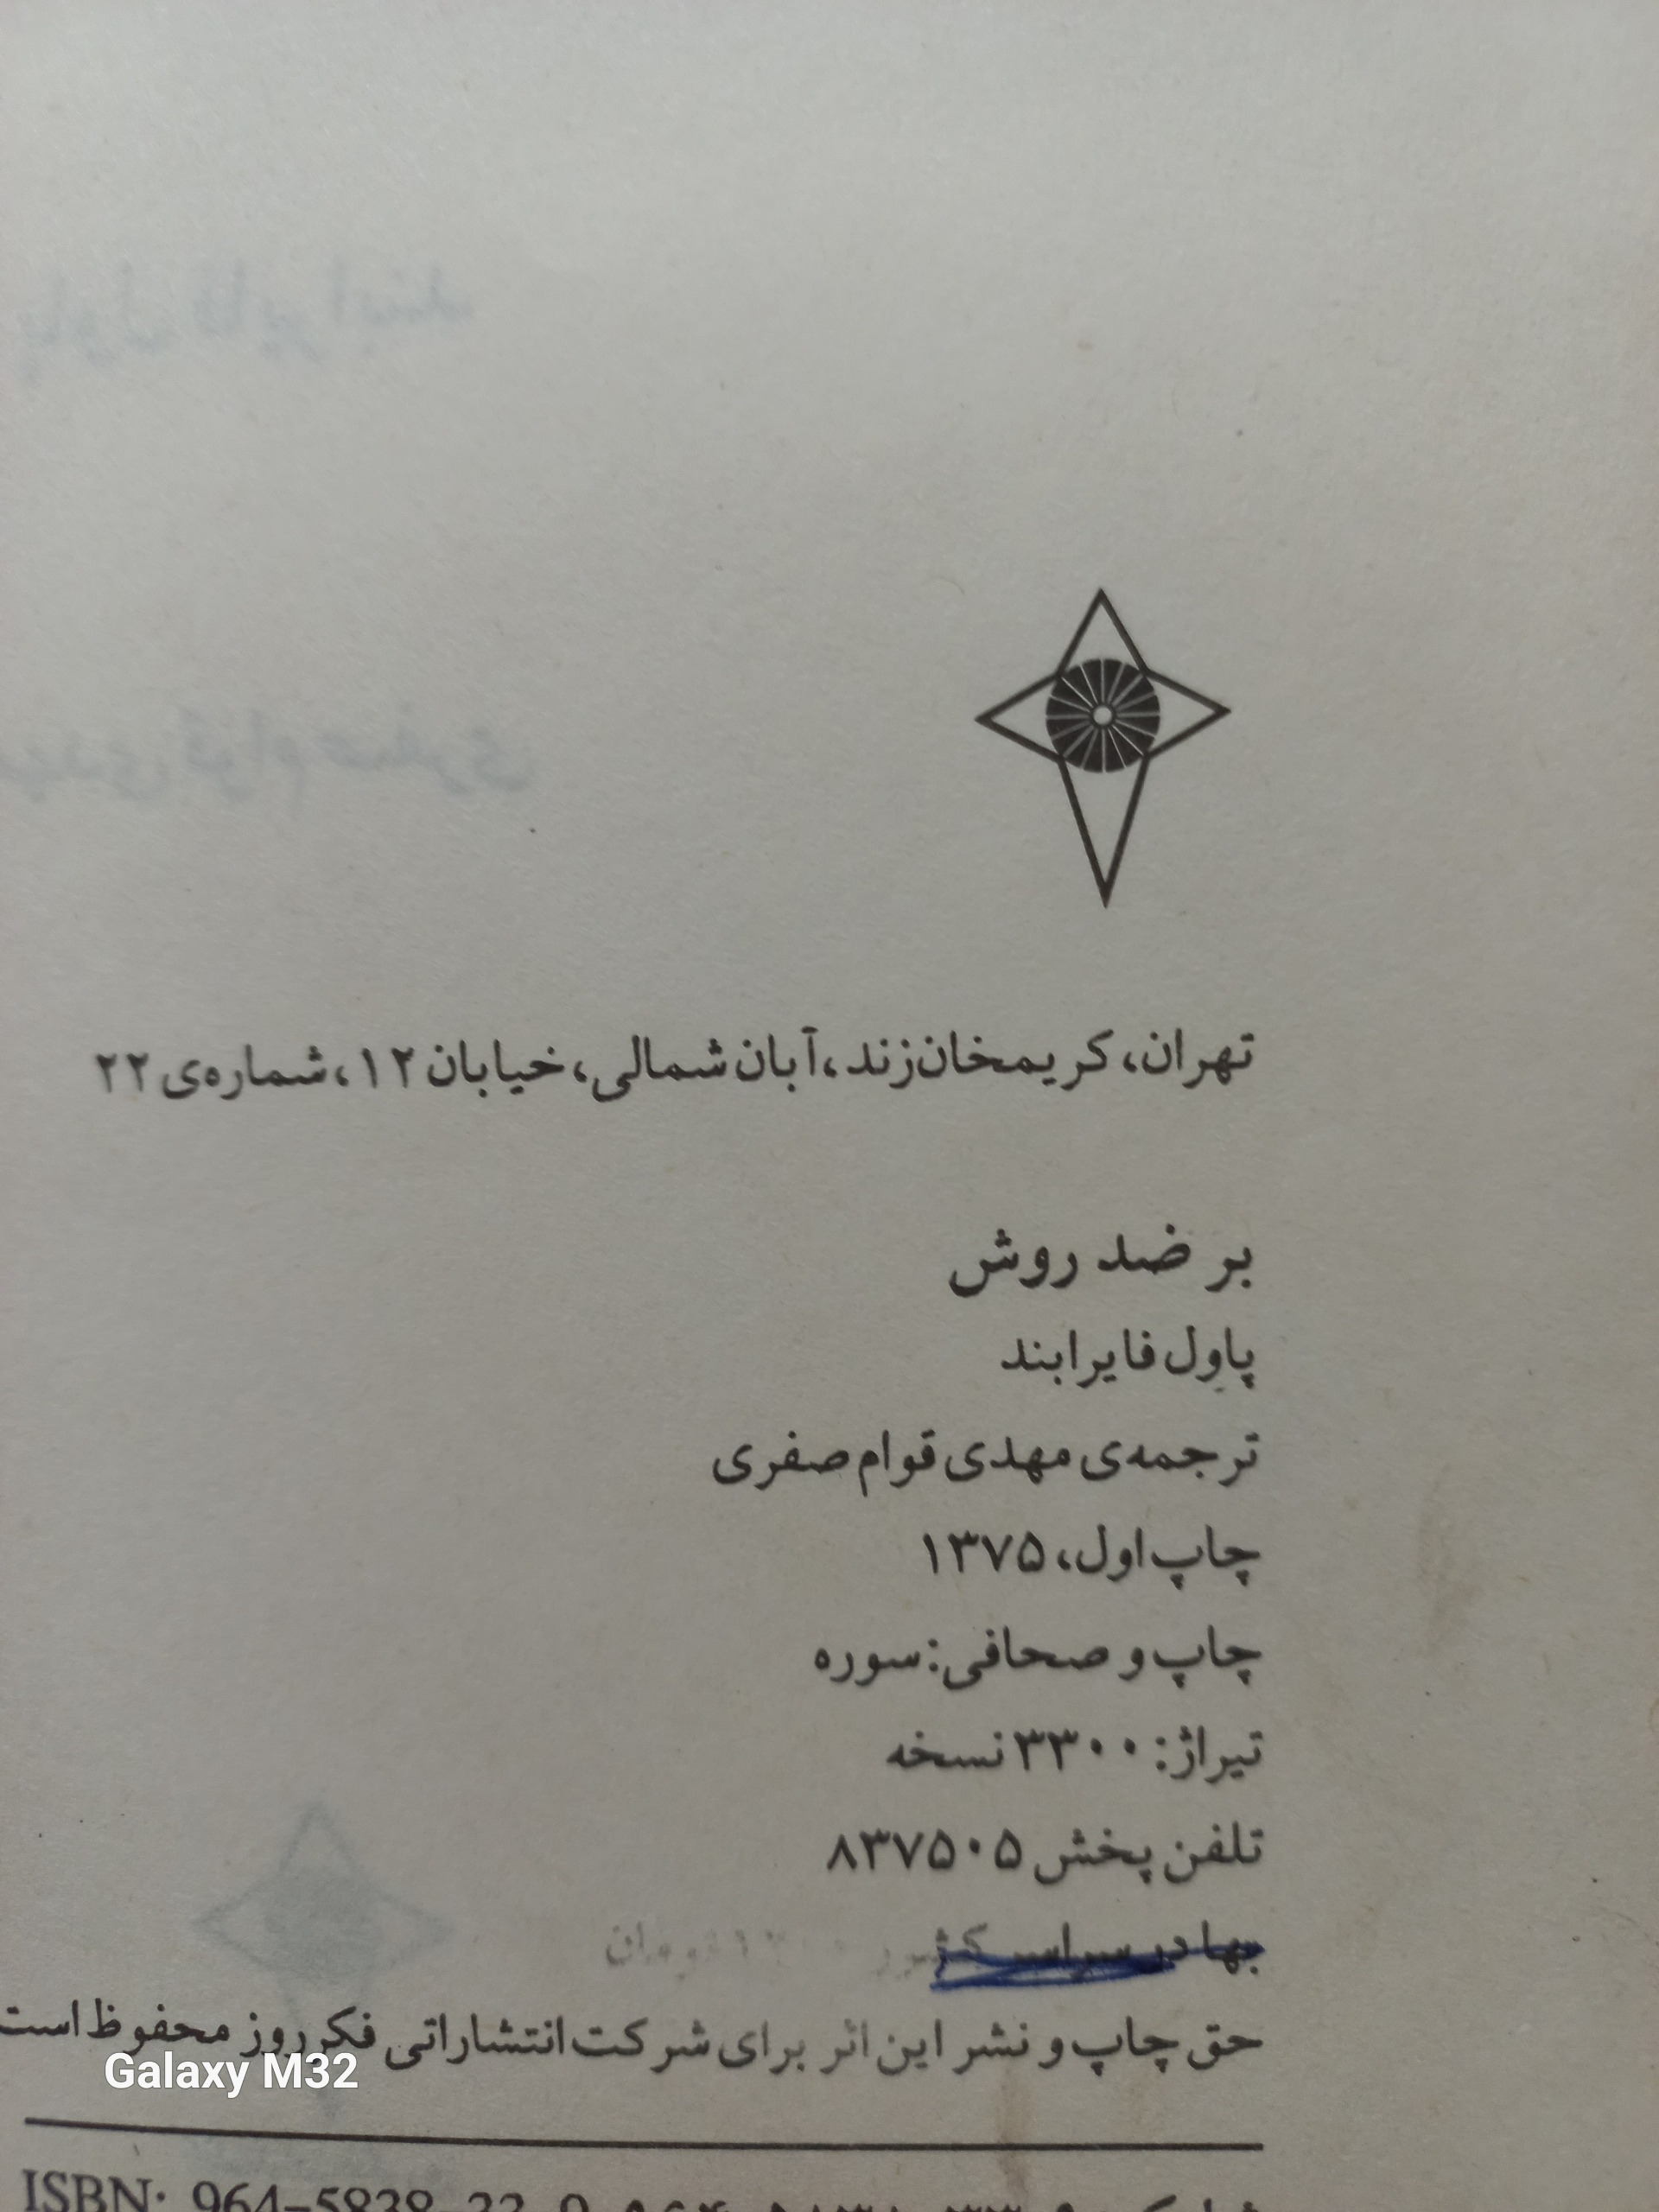 تهران، کریمخان‌زند، آبان شمالی، خیابان ۱۲، شماره‌ی ۲۲
بر ضد روش
پاوِل فایرابند
ترجمه‌ی مهدی قوام صفری
چاپ اول، ۱۳۷۵
چاپ و صحافی: سوره
تیراژ: ۳۳۰۰ نسخه
تلفن پخش ۸۳۷۵۰۵
بها در سراسر کشور تومان
حق چاپ و نشر این اثر برای شرکت انتشاراتی فکر روز محفوظ است
Galaxy M32
ISBN: 964-5838-33-9